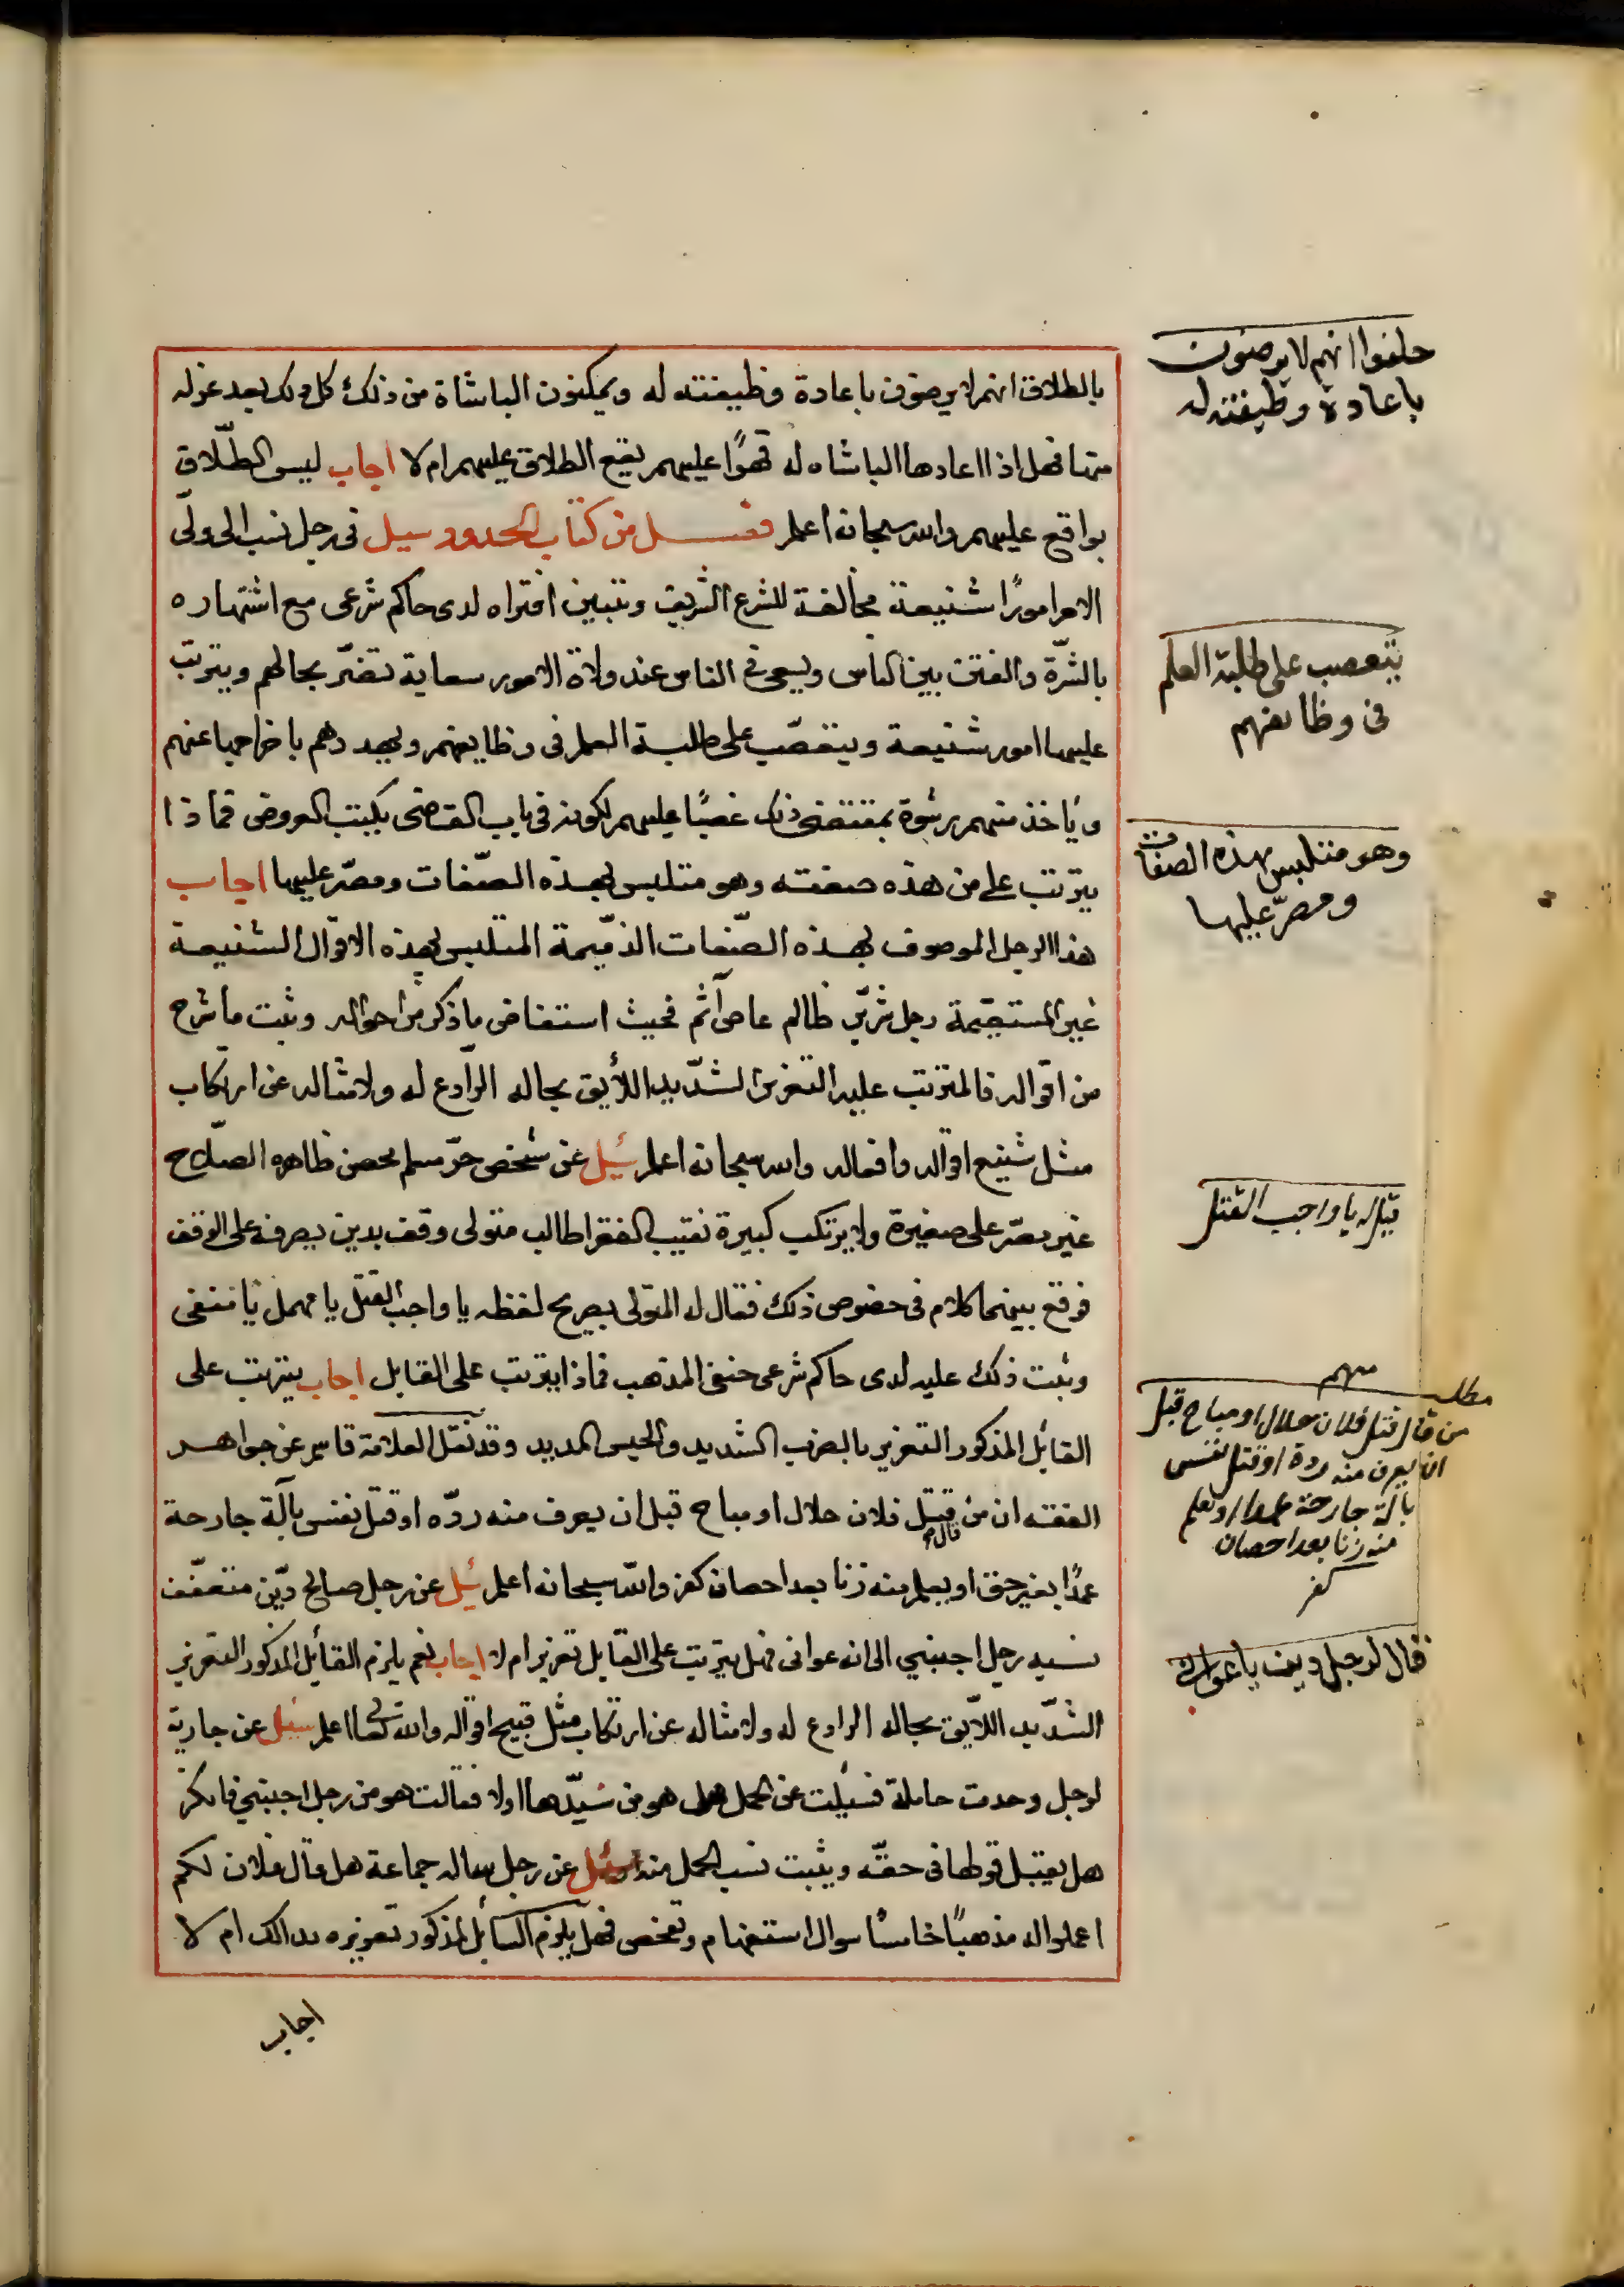 بالطلاق انهم لا يرضون باعادة وظيفته له ويمكنون الباشاة من ذلك كل ذلك بعد عزله
منها فهل اذا اعادها الباشاه له قهرًا عليهم يقع الطلاق عليهم ام لا اجاب ليس الطّلاق
بواقع عليهم والله سبحانه اعلم فصل من كتاب الحدود سيل في رجل نسب الى ولّى
الامر امورًا شنيعة مخالفة للشرع الشريف وتبين افتراه لدى حاكم شرعى مع اشتهاره
بالشرّة والفتن بين الناس ويسعى في الناس عند ولاة الامور سعاية تضرّ بحالهم ويترتب
عليها امور شنيعة ويتعصّب على طلبة العلم فى وظايفهم ويهددهم باخراجها عنهم
ويأخذ منهم رشوة بمقتضى ذلك غصبًا عليهم لكونه فى باب القاضى يكتب العروض فماذا
يترتب على من هذه صفته وهو متلبس بهذه الصّفات ومصرّ عليها اجاب
هذا الرجل الموصوف بهذه الصّفات الذميمة المتلبس بهذه الاقوال الشنيعة
غير المستقيمة رجل شرّير ظالم عاص آثم فحيث استفاض ما ذكر من احواله وثبت ما شرح
من اقواله فالمترتب عليه التعزير الشّديد اللأيق بحاله الرّادع له ولامثاله عن ارتكاب
مثل شنيع اقواله وافعاله والله سبحانه اعلم سُيل عن شخص حرّ مسلم محصن ظاهره الصّلاح
غير مصرّ على صغيرة ولا يرتكب كبيرة نقيب الفقرا طالب متولى وقف بدين يصرفه على الوقف
فوقع بينهما كلام فى خصوص ذلك فقال له المتولى بصريح لفظه يا واجب القتل يا مهمل يا منفى
وثبت ذلك عليه لدى حاكم شرعى حنفى المذهب فماذا يترتب على القايل اجاب يترتب على
القائل المذكور التعزير بالضرب الشديد والحبس المديد وقد نقل العلامة قاسم عن جواهر
الفقه ان من قال قتل فلان حلال او مباح قبل ان يعرف منه ردّه او قتل نفس بآلة جارحة
عمدًا بغير حق او يعلم منه زنا بعد احصان كفر والله سبحانه اعلم سُيل عن رجل صالح ديّن متعفّف
نسبه رجل اجنبي الى انه عوانى فهل يترتب على القايل تعزير ام لا اجاب نعم يلزم القائل المذكور التعزير
الشّديد اللاّيق بحاله الرادع له ولامثاله عن ارتكاب مثل قبيح اقواله والله تعالى اعلم سئل عن جارية
لرجل وجدت حاملة فسيلت عن الحمل هل هو من سيّدها اولا فقالت هو من رجل اجنبي فانكر
هل يقبل قولها فى حقّه ويثبت نسب الحمل منه سئل عن رجل ساله جماعة هل قال فلان لكم
اعملوا له مذهبًا خامسًا سوال استفهام وتفحص فهل يلزم السائل المذكور تعزيره بذالك ام لا
اجاب
حلفوا انهم لا يرضون
باعادة وظيفته له
يتعصب على طلبة العلم
فى وظايفهم
وهو متلبس بهذه الصفات
ومصرّ عليها
قيل له يا واجب القتل
مطلب مهم
من قال قتل فلان حلال او مباح قبل
ان يعرف منه ردة او قتل نفس
بالة جارحة عمدا او يعلم
منه زنا بعد احصان
كفر
قال لرجل دين يا عوانى